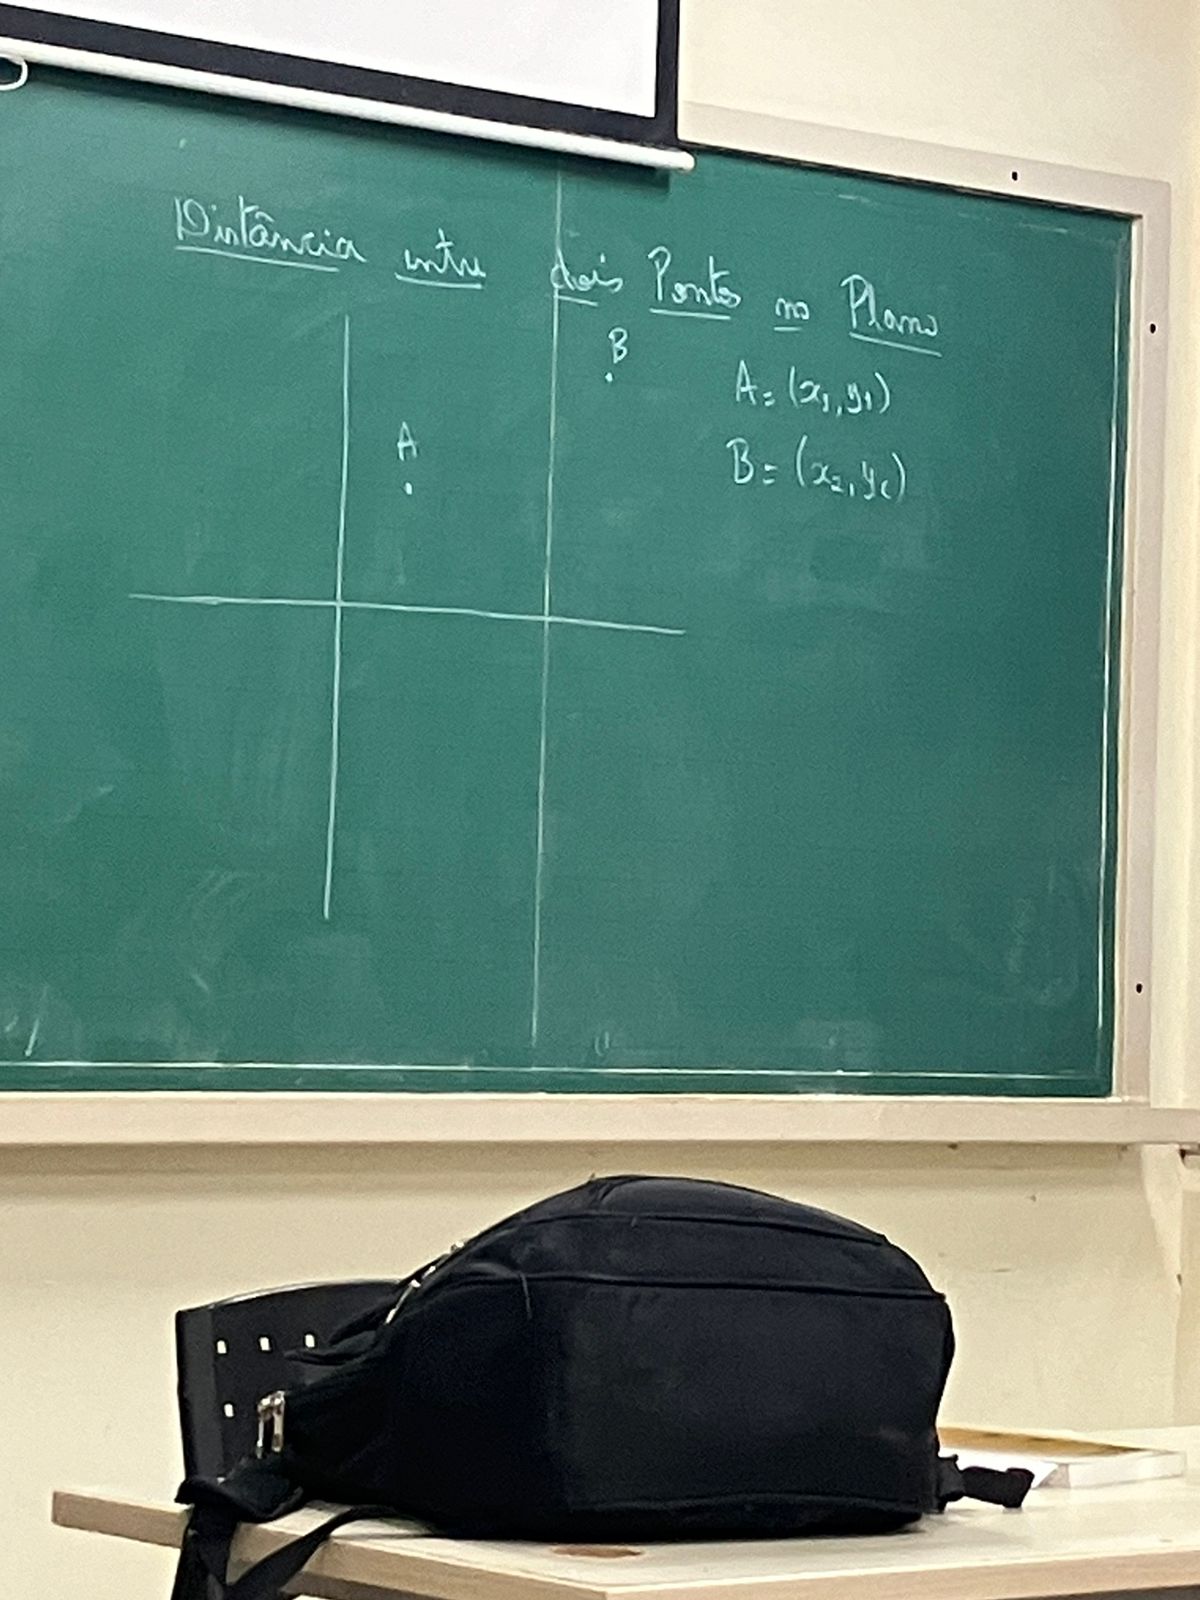 Distância entre dois Pontos no Plano
B
A = (x₁, y₁)
A
B = (x₂, y₂)